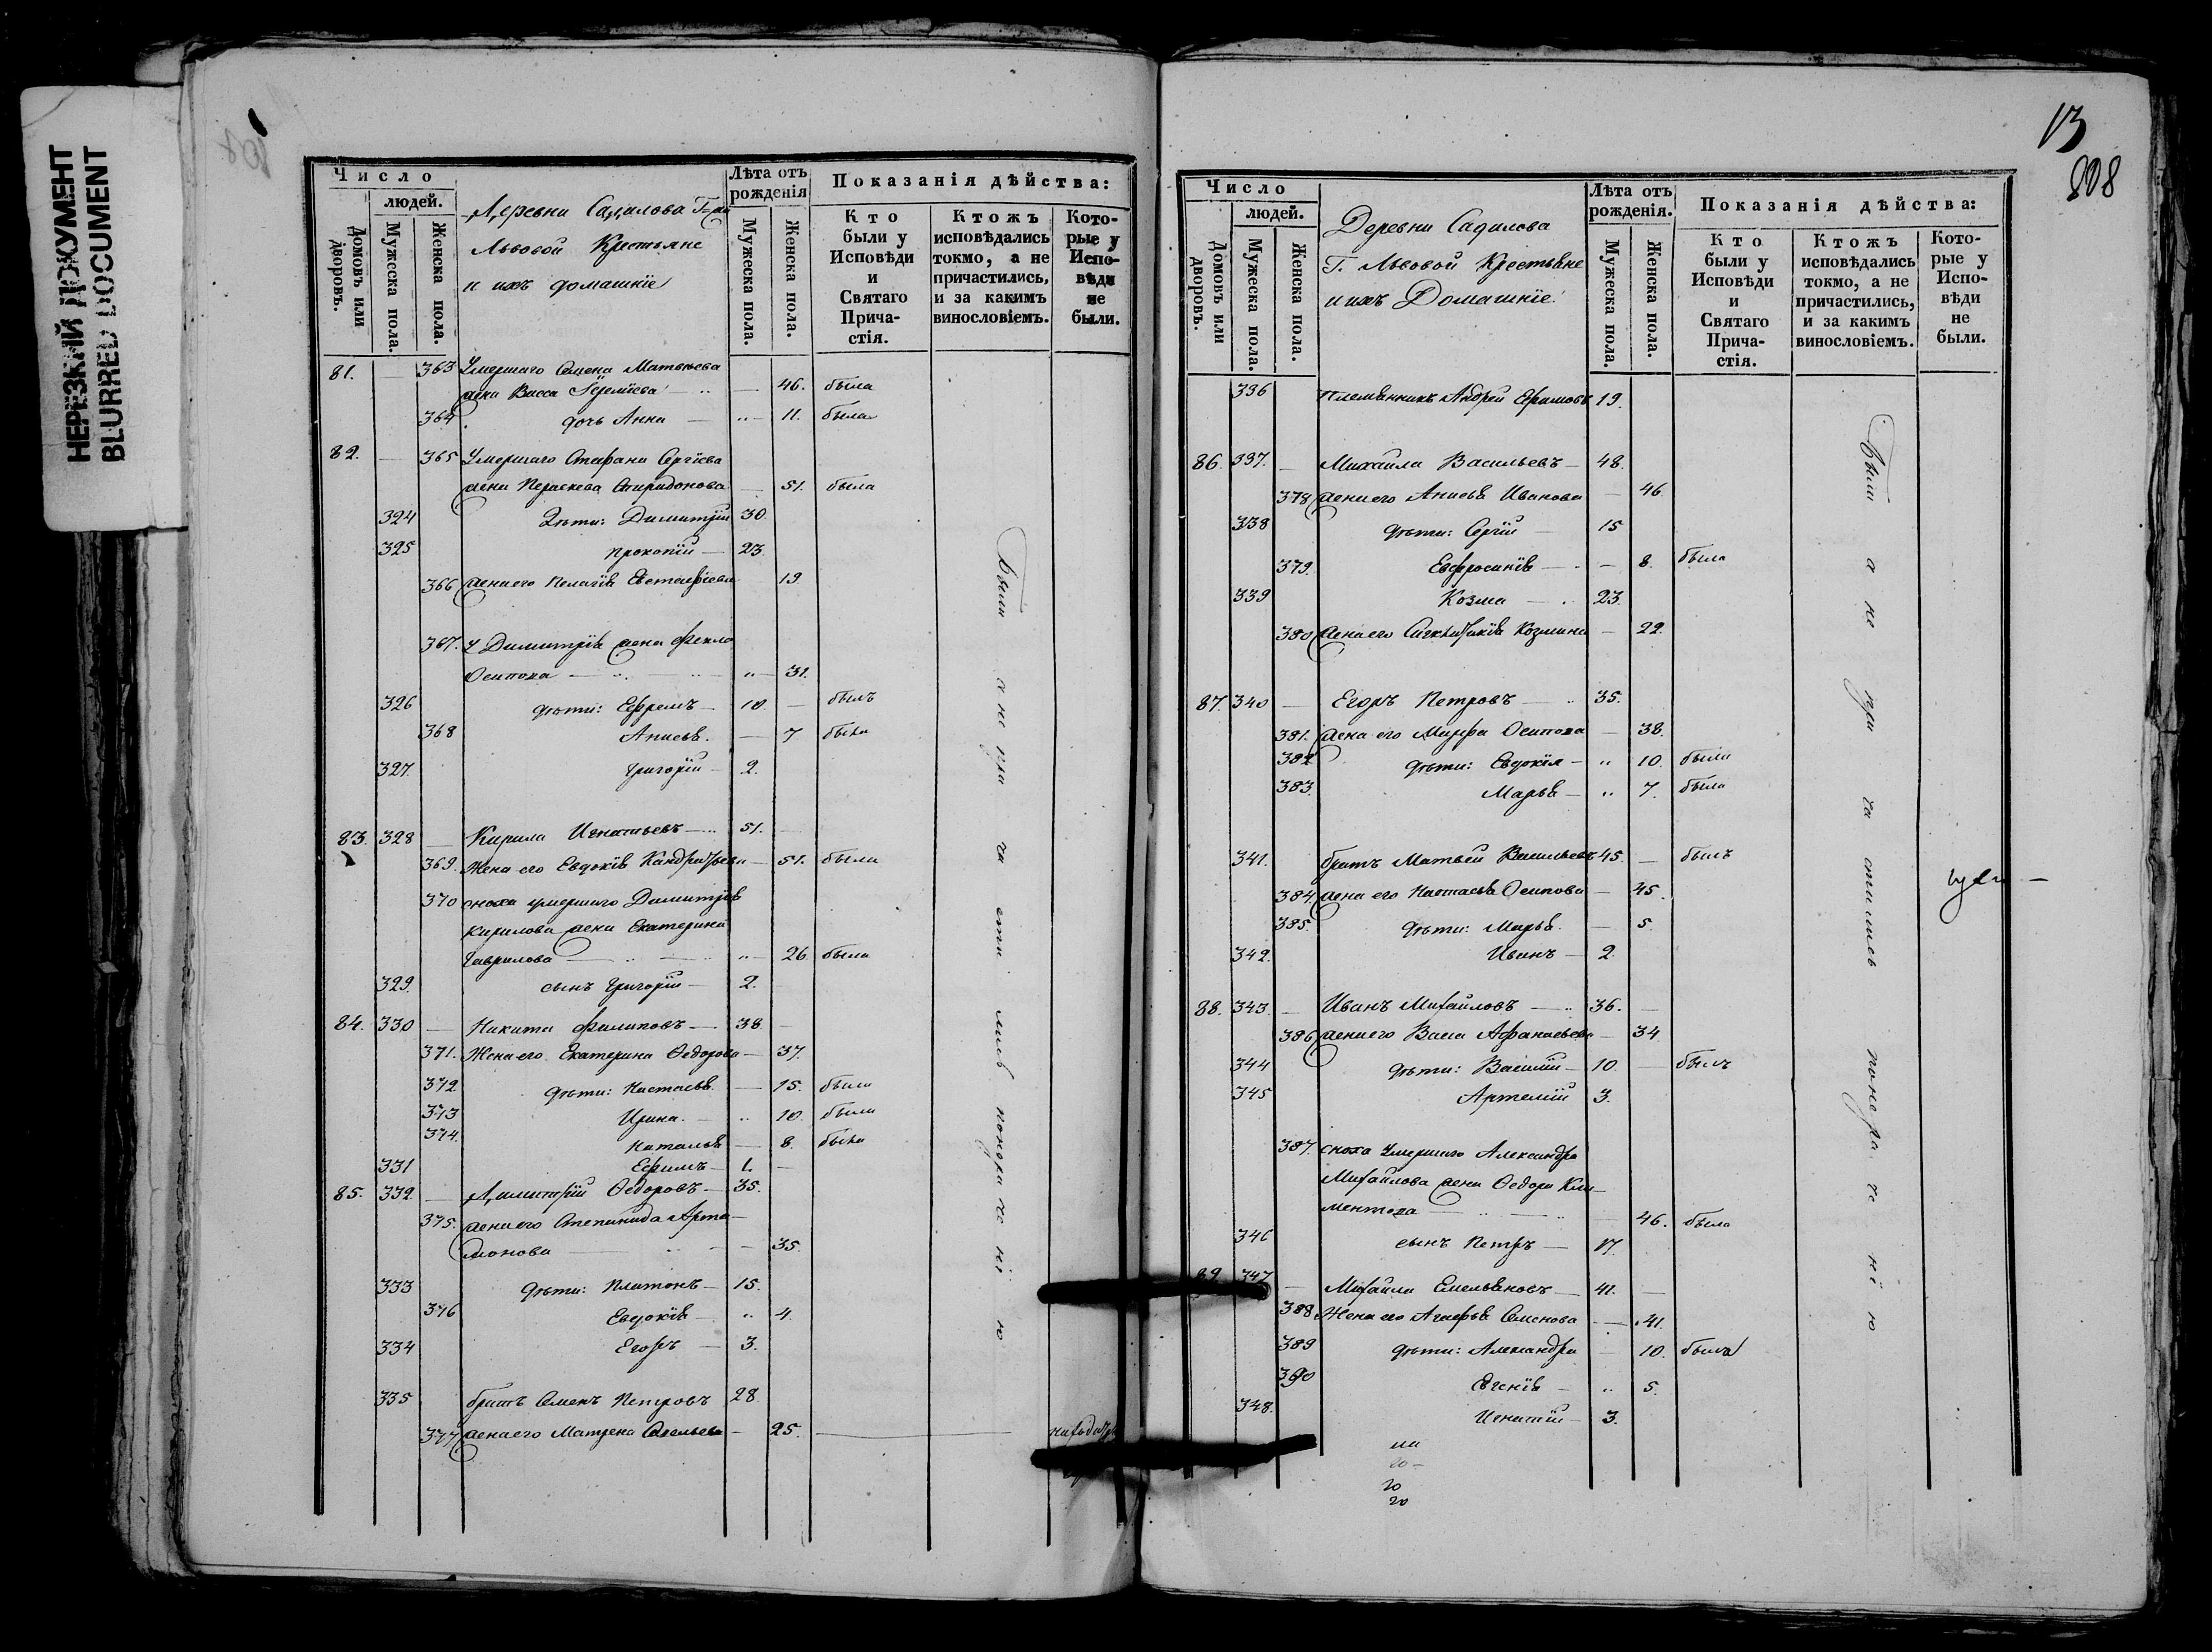 НЕРЕЗКИЙ ДОКУМЕНТ
BLURRED DOCUMENT
Число
людей.
Домовъ или дворовъ.
Мужеска пола.
Женска пола.
Деревни Садилова Г-жи
Львовой Крестьяне
и ихъ домашніе
Лѣта отъ рожденія
Мужеска пола.
Женска пола.
Показанія дѣйства:
Кто были у Исповѣди и Святаго Причастія.
Ктожъ исповѣдались токмо, а не причастились, и за какимъ винословіемъ.
Которые у Исповѣди не были.
81. — 363 Умершаго Семена Матвѣева
жена Васса — 46. была
364 дочь Анна — 11. была
82. — 365 Умершаго Стефана Сергіева
жена Параскева Спиридонова — 51. была
324 Дѣти: Димитрій 30.
325 Прокопій — 23.
366 жена его Пелагія Евстафіева 19
367. У Димитрія жена Фекла
Осипова — 31.
326 дѣти: Ефремъ — 10 — былъ
368 Анисья. — 7 была
327. Григорій — 2.
83. 328 — Кирила Игнатьевъ — 51. —
369. Жена его Евдокія Кандратьева — 51. была
370 сноха умершаго Димитрія
Кирилова жена Екатерина
Гаврилова — 26. была
329. сынъ Григорій — 2.
84. 330 — Никита Филиповъ — 38 —
371. Жена его Екатерина Федорова — 37.
372 дѣти: Настасья. — 15. была
373 Ирина. — 10. была
374. Наталья — 8. была
331 Ефимъ — 1. —
85. 332. — Димитрій Федоровъ — 35.
375. жена его Степанида Арта-
монова — 35.
333 дѣти: Платонъ — 15.
376 Евдокія — 4.
334 Егоръ — 3.
335 братъ Семенъ Петровъ 28.
377 жена его Матрена Савельева — 25.
Были а не причастились
13
808
Число
людей.
Домовъ или дворовъ.
Мужеска пола.
Женска пола.
Деревни Садилова
Г. Львовой Крестьяне
и ихъ Домашніе
Лѣта отъ рожденія.
Мужеска пола.
Женска пола.
Показанія дѣйства:
Кто были у Исповѣди и Святаго Причастія.
Ктожъ исповѣдались токмо, а не причастились, и за какимъ винословіемъ.
Которые у Исповѣди не были.
336 племянникъ Андрей Ефимовъ 19.
86. 337. — Михаила Васильевъ — 48.
378 жена его Анисья Иванова — 46.
338 дѣти: Сергій — 15
379. Евфросинія — 8. была
339 Козма — 23.
380 жена его Козмина — 22.
87. 340 — Егоръ Петровъ — 35.
381. жена его Марфа Осипова — 38.
382 дѣти: Евдокія — 10. была
383. Марья — 7. была
341. братъ Матвей Васильевъ 45. — былъ
384. жена его Настасья Осипова — 45.
385. дѣти: Марья. — 5.
342. Иванъ — 2.
88. 343. — Иванъ Михайловъ — 36. —
386 жена его Васса Афанасьева — 34
344 дѣти: Василій — 10. — былъ
345 Артемій 3.
387. сноха умершаго Александра
Михайлова жена Федора Кли-
ментова — 46. была
346 сынъ Петръ — 17.
89 347 — Михайла Емельяновъ — 41. —
388. Жена его Агафья Семенова — 41.
389 дѣти: Александра — 10. была
390 Евгенія — 5.
348. Игнатій — 3.
Были а не причастились